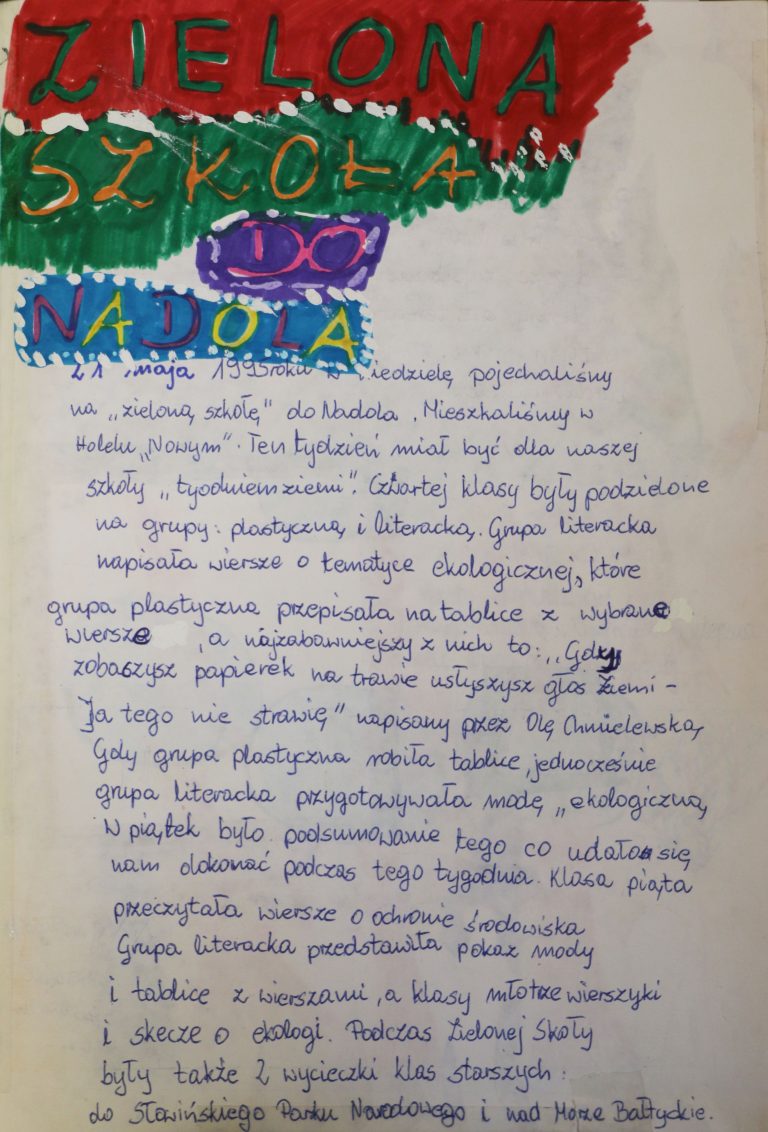 ZIELONA
SZKOŁA
DO
NADOLA
21 maja 1995 roku w niedzielę pojechaliśmy
na „zieloną szkołę” do Nadola. Mieszkaliśmy w
Hotelu „Nowym”. Ten tydzień miał być dla naszej
szkoły „tyodniem ziemi”. Czwartej klasy były podzielone
na grupy: plastyczną i literacką. Grupa literacka
napisała wiersze o tematyce ekologicznej, które
grupa plastyczna przepisała na tablice z wybrane
wiersze , a najzabawniejszy z nich to: „Gdy
zobaszysz papierek na trawie usłyszysz głos Ziemi -
Ja tego nie strawię” napisany przez Olę Chmielewską
Gdy grupa plastyczna robiła tablice, jednocześnie
grupa literacka przygotowywała modę „ekologiczną
W piątek było podsumowanie tego co udało się
nam dokonać podczas tego tygodnia. Klasa piąta
przeczytała wiersze o ochronie środowiska
Grupa literacka przedstawiła pokaz mody
i tablice z wierszami, a klasy młotrze wierszyki
i skecze o ekologi. Podczas Zielonej Skoły
były także 2 wycieczki klas starszych:
do Słowińskiego Parku Narodowego i nad Morze Bałtyckie.